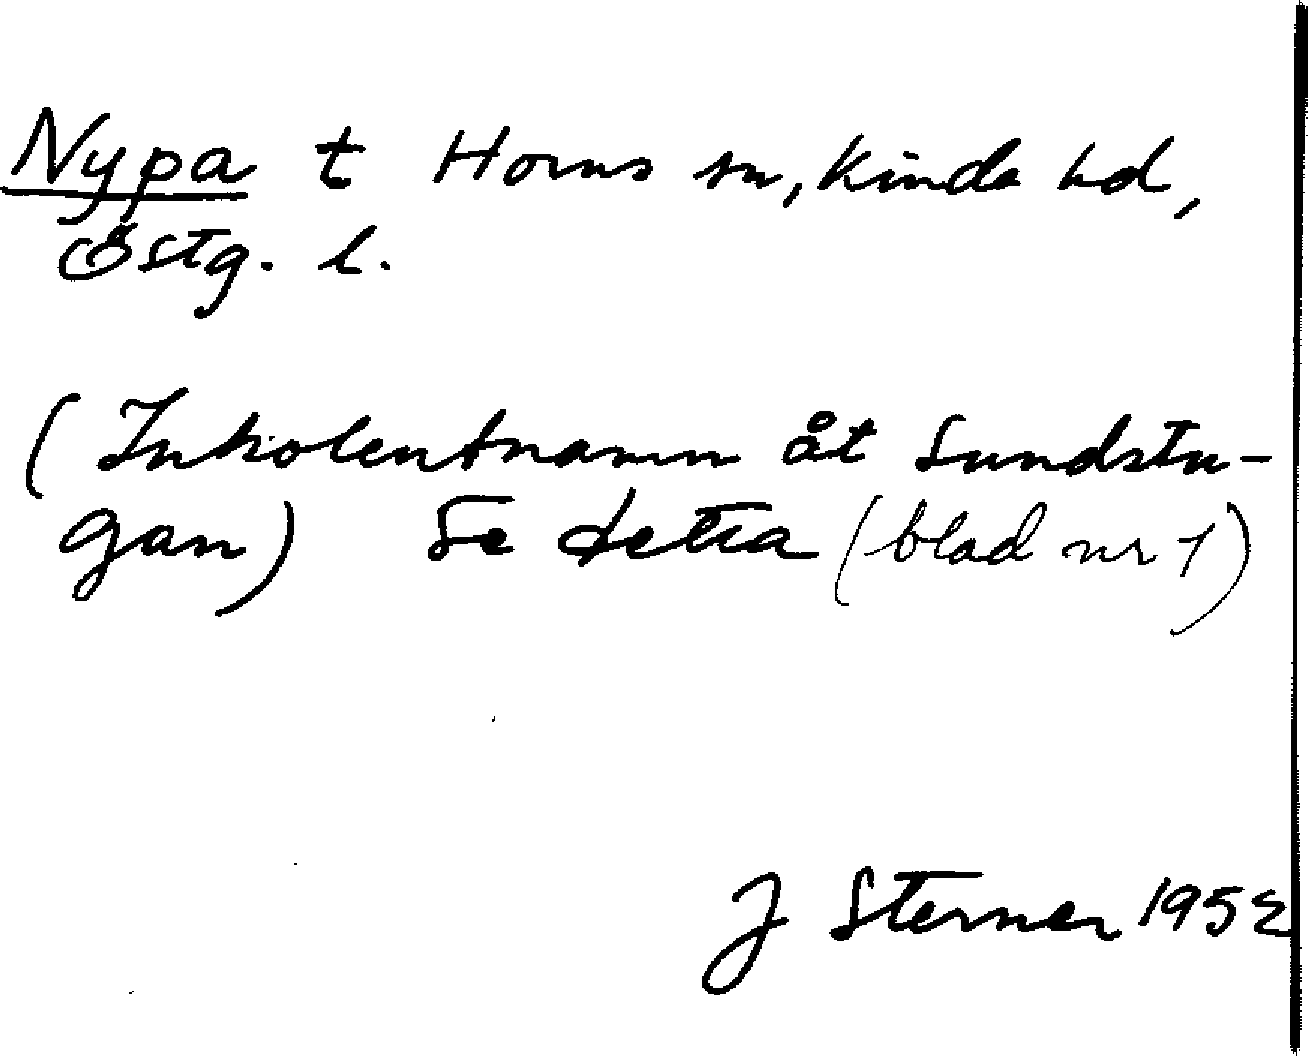 Nypa t Horns sn, Kinda hd,
Östg. l.
(Inkolentnamn åt Sundstu-
gan) Se detta (blad nr 1)
J Sterner 1952